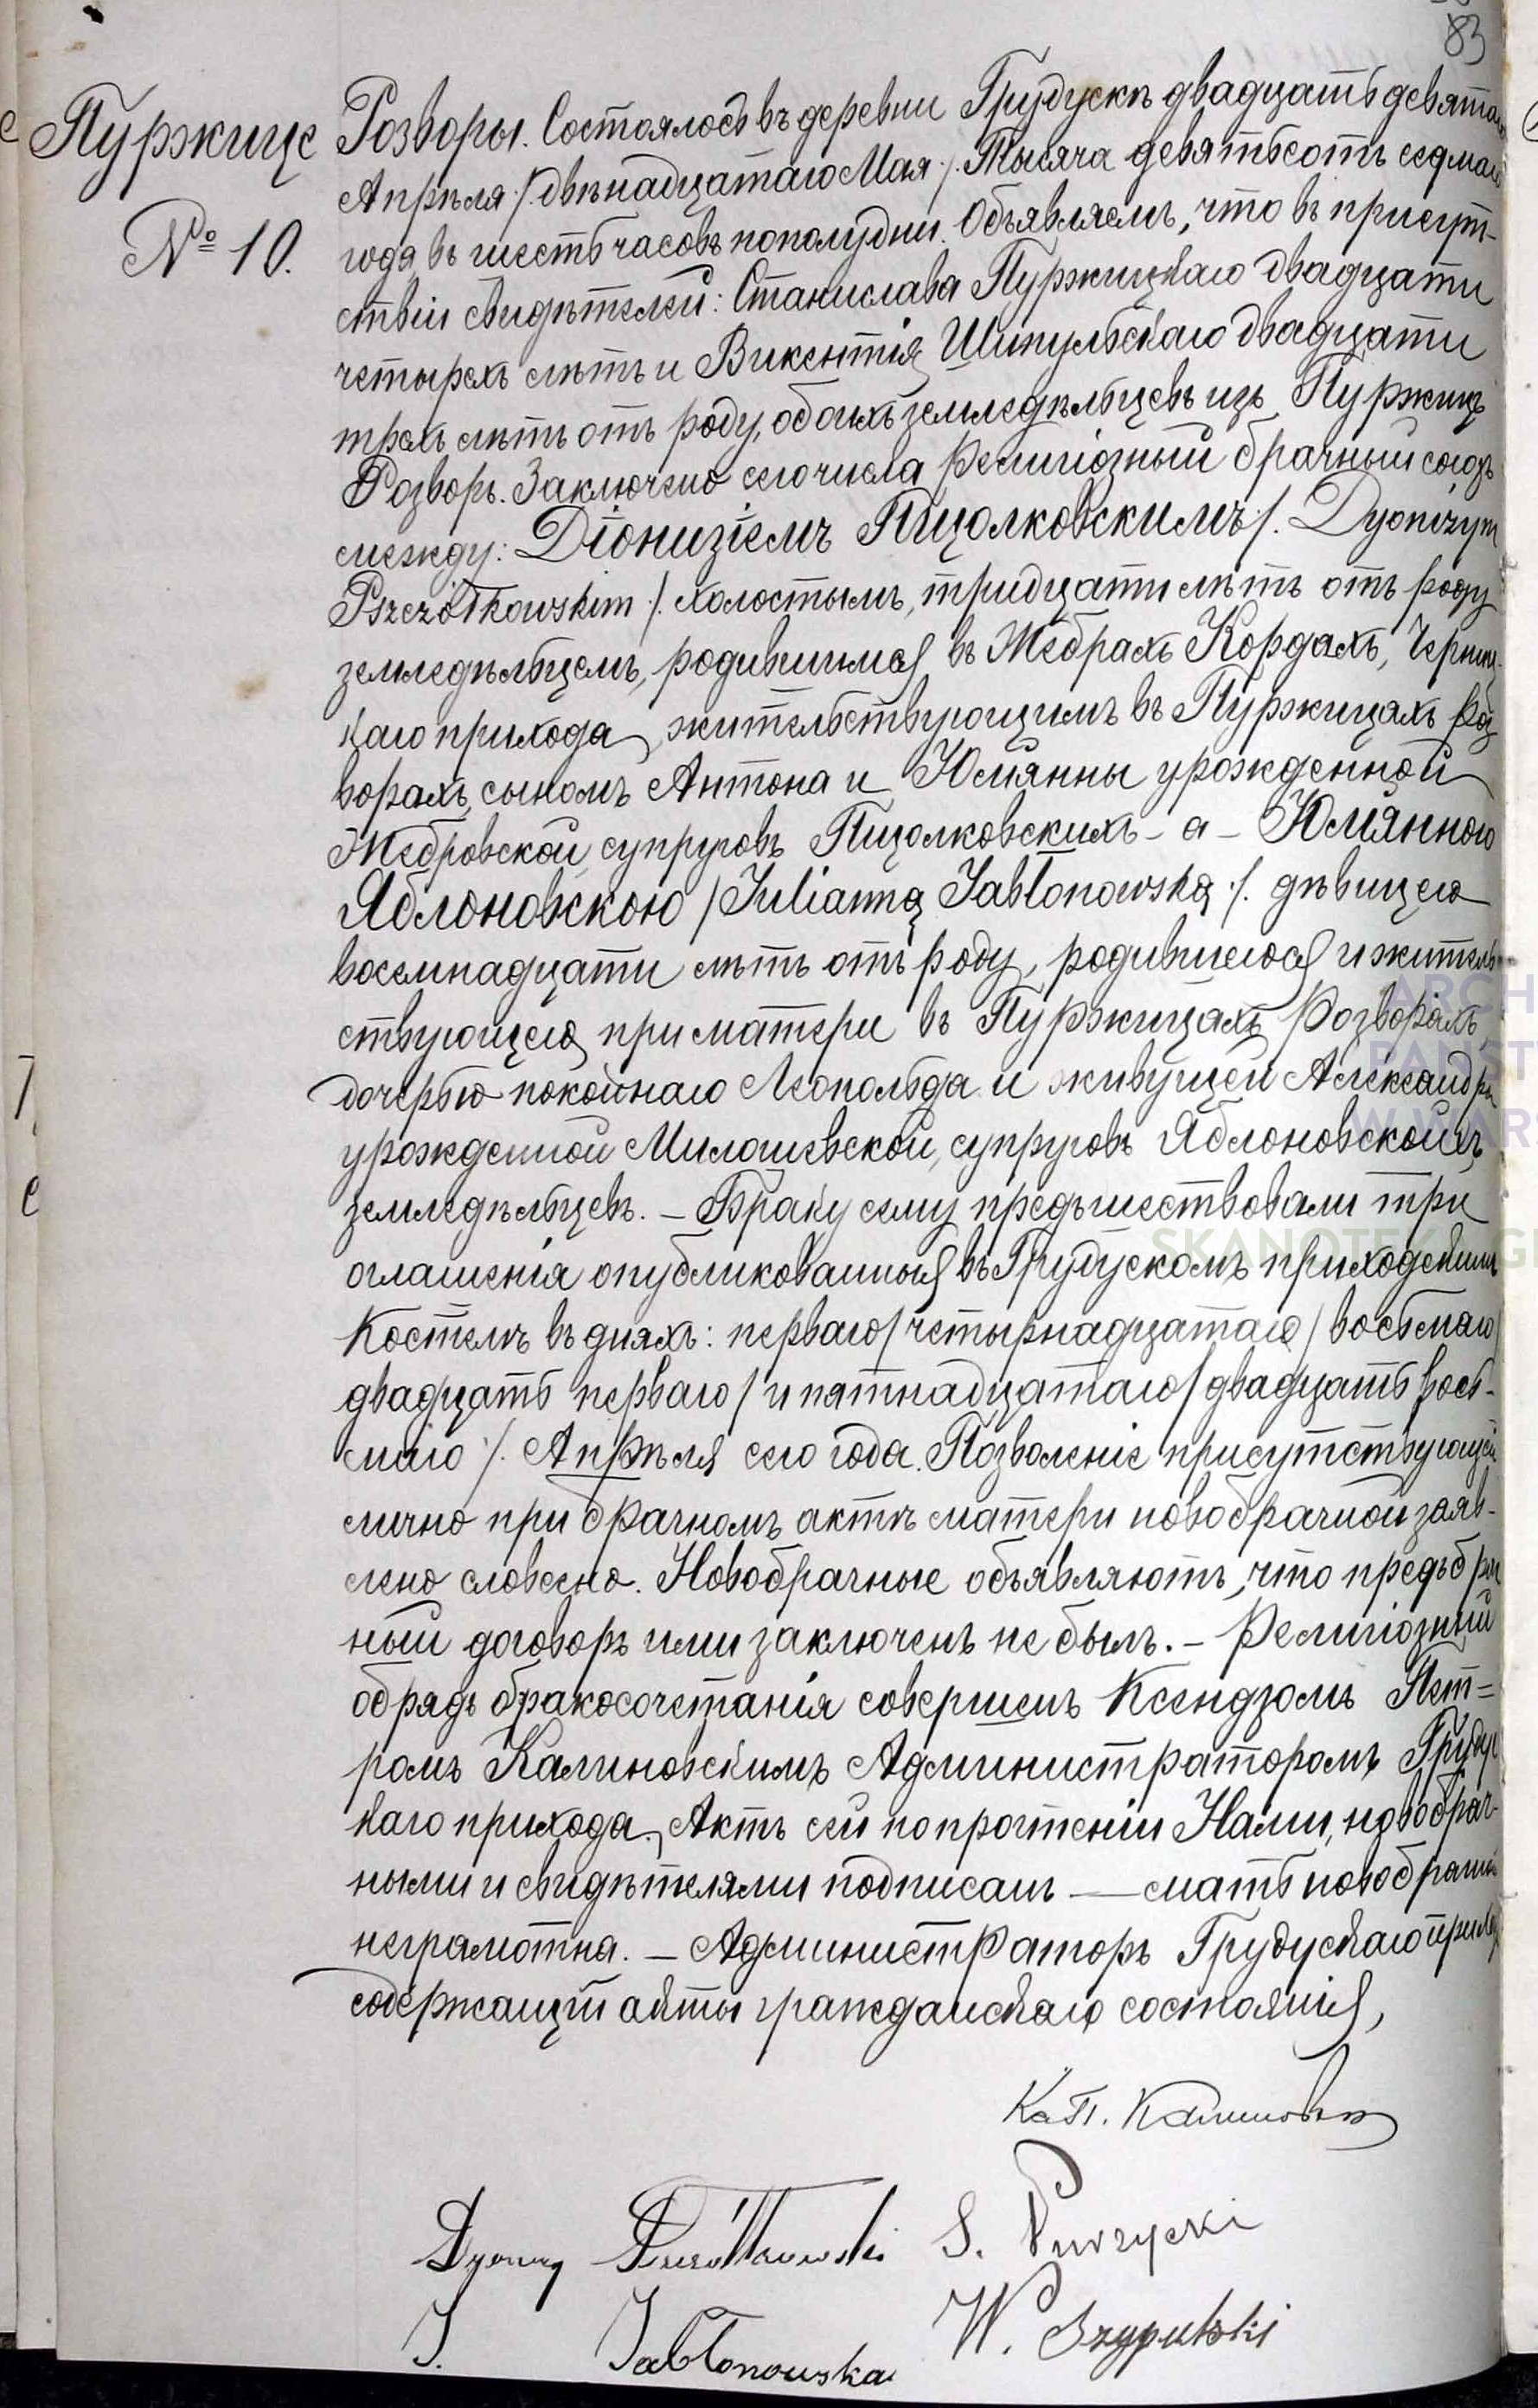 83
Пуржице
№ 10.
Розворы. Состоялось въ деревни Грудускъ двадцать девятаго
Апрѣля /. двѣнадцатаго Мая ./. Тысяча девятьсотъ седмаго
года въ шесть часовъ пополудни. Объявляемъ, что въ присут-
ствіи свидѣтелей: Станислава Пуржицкаго двадцати
четырехъ лѣтъ и Викентія Шипульскаго двадцати
трехъ лѣтъ отъ роду, обоихъ земледѣльцевъ изъ Пуржицъ
Розворъ. Заключено сего числа религіозный брачный союзъ
между: Діонизіемъ Пщолковскимъ /. Dyonizym
Pszczółkowskim /. холостымъ, тридцати лѣтъ отъ роду
земледѣльцемъ, родившимся въ Жебрахъ Кордахъ,
каго прихода, жительствующимъ въ Пуржицахъ Роз-
ворахъ, сыномъ Антона и Юліянны урожденной
Жебровской, супруговъ Пщолковскихъ - а - Юліянною
Яблоновскою / Julianną Jabłonowską /. дѣвицею
восемнадцати лѣтъ отъ роду, родившеюся и житель-
ствующею при матери въ Пуржицахъ Розворахъ,
дочерью покойнаго Леопольда и живущей Александры
урожденной Милошевской, супруговъ Яблоновскихъ
земледѣльцевъ. - Браку сему предшествовали три
оглашенія опубликованныя въ Грудускомъ приходскимъ
Костелѣ въ дняхъ: перваго / четырнадцатаго / восьмаго /
двадцать перваго / и пятнадцатаго / двадцать вось-
маго /. Апрѣля сего года. Позволеніе присутствующей
лично при брачномъ актѣ матери новобрачной заяв-
лено словесно. Новобрачные объявляютъ, что предбрач-
ный договоръ ими заключенъ не былъ. - Религіозный
обрядъ бракосочетанія совершенъ Ксендзомъ Пет=
ромъ Калиновскимъ Администраторомъ Грудус-
каго прихода. Актъ сей по прочтеніи Нами, новобрач-
ными и свидѣтелями подписанъ — мать новобрачной
неграмотна. - Администраторъ Грудускаго прихода
содержащій акты гражданскаго состоянія,
Кс. П. Калиновскі
Dyonizy Pszczółkowski S. Purzycki
J. Jabłonowska W. Szypulski